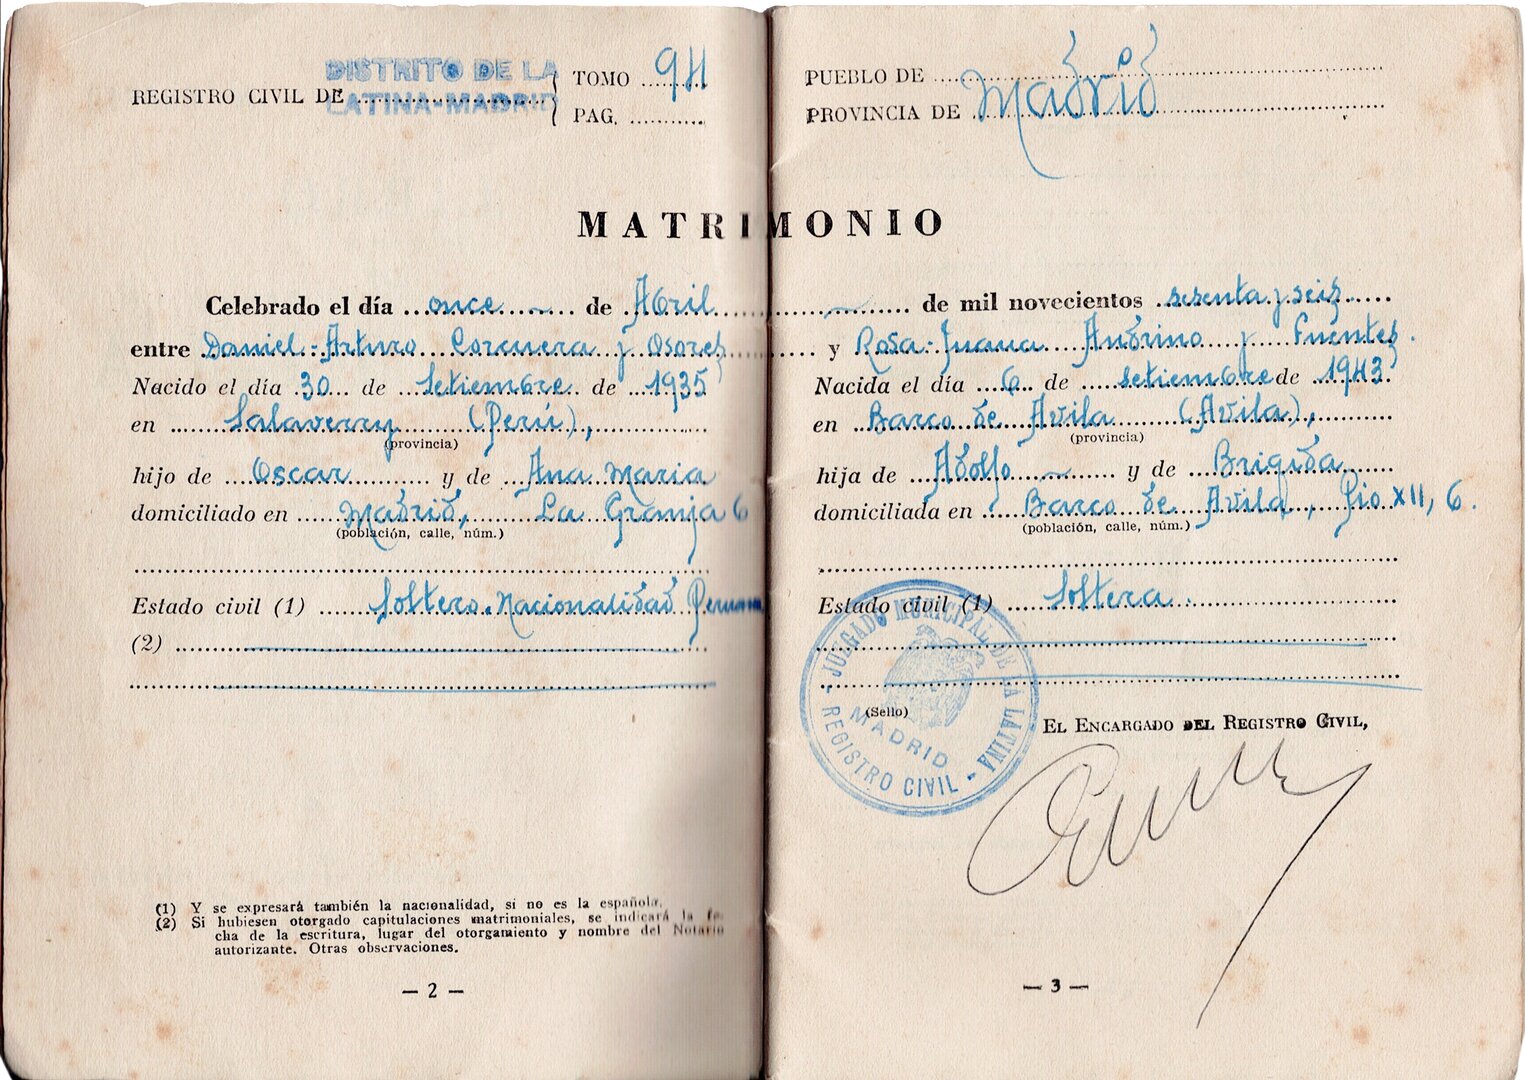 DISTRITO DE LA
LATINA-MADRID
REGISTRO CIVIL DE
TOMO 94
PAG.
MATRIMONIO
Celebrado el día once de Abril
entre Daniel-Arturo Corcuera y Osores
Nacido el día 30 de Setiembre de 1935
en Salaverry (Perú),
(provincia)
hijo de Oscar y de Ana Maria
domiciliado en Madrid, La Granja 6
(población, calle, núm.)
Estado civil (1) Soltero. Nacionalidad Peruana
(2)
(1) Y se expresará también la nacionalidad, si no es la española.
(2) Si hubiesen otorgado capitulaciones matrimoniales, se indicará la fe-
cha de la escritura, lugar del otorgamiento y nombre del Notario
autorizante. Otras observaciones.
— 2 —
PUEBLO DE
PROVINCIA DE Madrid
de mil novecientos sesenta y seis
y Rosa-Juana Andrino y Fuentes.
Nacida el día 6 de setiembre de 1943
en Barco de Avila (Avila),
(provincia)
hija de Adolfo y de Brigida
domiciliada en Barco de Avila, Pio XII, 6.
(población, calle, núm.)
Estado civil (1) Soltera.
JUZGADO MUNICIPAL DE LA LATINA
MADRID
REGISTRO CIVIL
(Sello)
EL ENCARGADO DEL REGISTRO CIVIL,
— 3 —